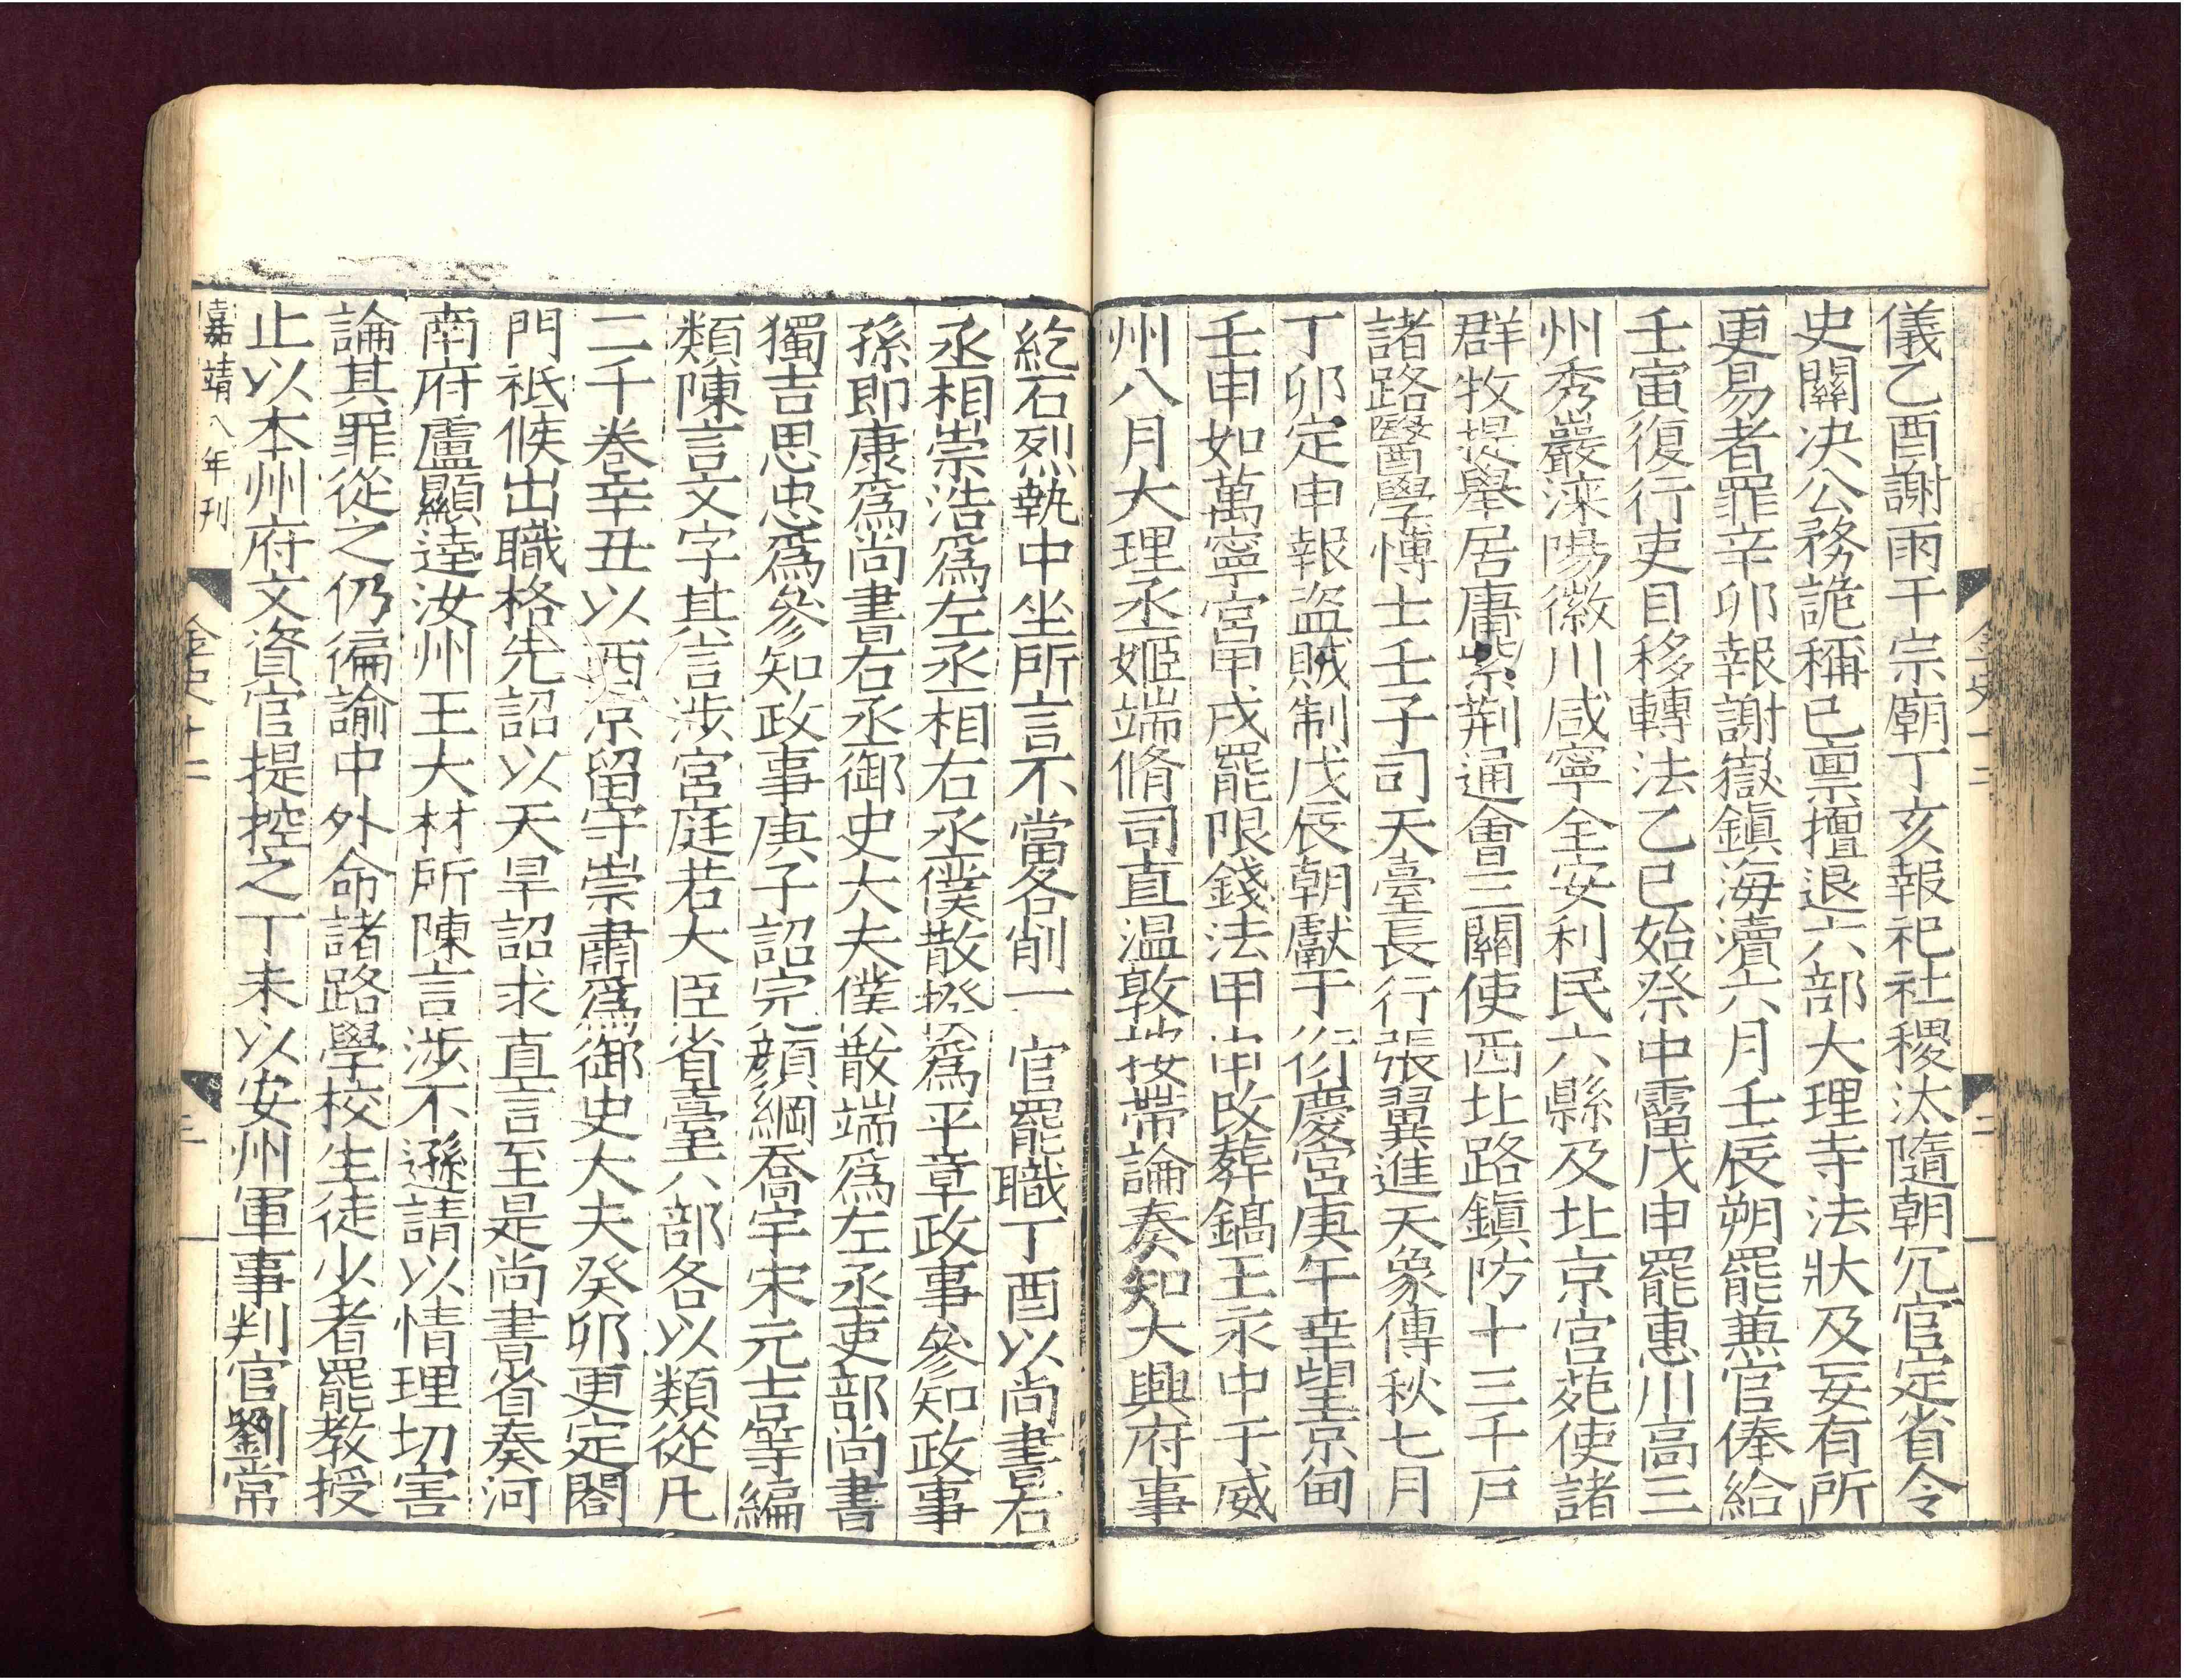 儀乙酉謝雨于宗廟丁亥報祀社稷汰隨朝冗官定省令
史關决公務詭稱已禀擅退六部大理寺法狀及妄有所
更易者罪辛卯報謝嶽鎭海瀆六月壬辰朔罷兼官俸給
壬寅復行吏目移轉法乙巳始祭中霤戊申罷惠川高三
州秀巖滦陽徽川咸寧全安利民六縣及北京宮苑使諸
群牧提舉居庸紫荆通會三關使西北路鎭防十三千戶
諸路醫學博士壬子司天臺長行張翼進天象傳秋七月
丁卯定申報盜賊制戊辰朝獻于衍慶宮庚午幸望京甸
壬申如萬寧宮甲戌罷限錢法甲申改葬鎬王永中于威
州八月大理丞姬端脩司直温敦按帶論奏知大興府事
紇石烈執中坐所言不當各削一官罷職丁酉以尚書右
丞相崇浩爲左丞相右丞僕散揆爲平章政事參知政事
孫即康爲尚書右丞御史大夫僕散端爲左丞吏部尚書
獨吉思忠爲參知政事庚子詔完顔綱喬宇宋元吉等編
類陳言文字其言涉宮庭若大臣省臺六部各以類從凡
二千巻辛丑以西京留守崇肅爲御史大夫癸卯更定閤
門祗候出職格先詔以天旱詔求直言至是尚書省奏河
南府盧顯逵汝州王大材所陳言涉不遜請以情理切害
論其罪從之仍徧諭中外命諸路學校生徒少者罷教授
止以本州府文資官提控之丁未以安州軍事判官劉常
嘉靖八年刊
金史十二
三
金史十二
二